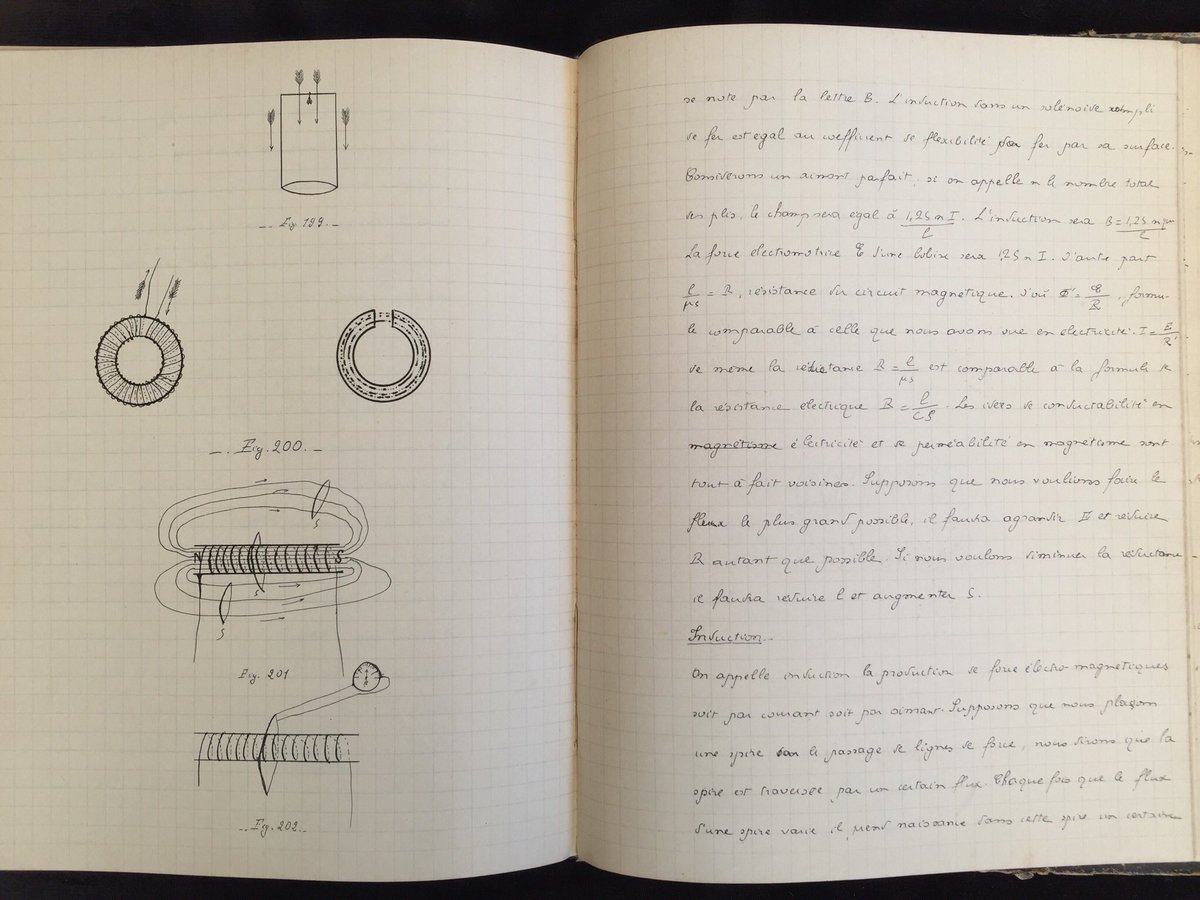 Fig. 199.
Fig. 200.
N S
S
S
S
Fig. 201
Fig. 202.
se note par la lettre B. L'induction dans un solénoide rempli
de fer est egal au coefficient de flexibilité fer par sa surface.
Considerons un aimant parfait, si on appelle n le nombre total
des plis, le champ sera egal à 1,25 n I / l. L'induction sera B = 1,25 n / l
La force electromotrice E d'une bobine sera 1,25 n I. D'autre part
l / μs = R, résistance du circuit magnetique. D'où Φ = E / R, formu-
le comparable à celle que nous avons vue en electricité. I = E / R
de même la réluctance R = l / μs est comparable à la formule de
la résistance electrique R = l / CS. Les idees de conductabilité en
magnétisme électricité et de perméabilité en magnetisme sont
tout à fait voisines. Supposons que nous voulions faire le
flux le plus grand possible, il faudra agrandir E et réduire
R autant que possible. Si nous voulons diminuer la reluctance
il faudra réduire l et augmenter S.
Induction.
On appelle induction la production de force électro-magnetiques
soit par courant soit par aimant. Supposons que nous plaçons
une spire sur le passage de lignes de force, nous dirons que la
spire est traversée par un certain flux. Chaque fois que le flux
d'une spire varie il prend naissance dans cette spire un certaine